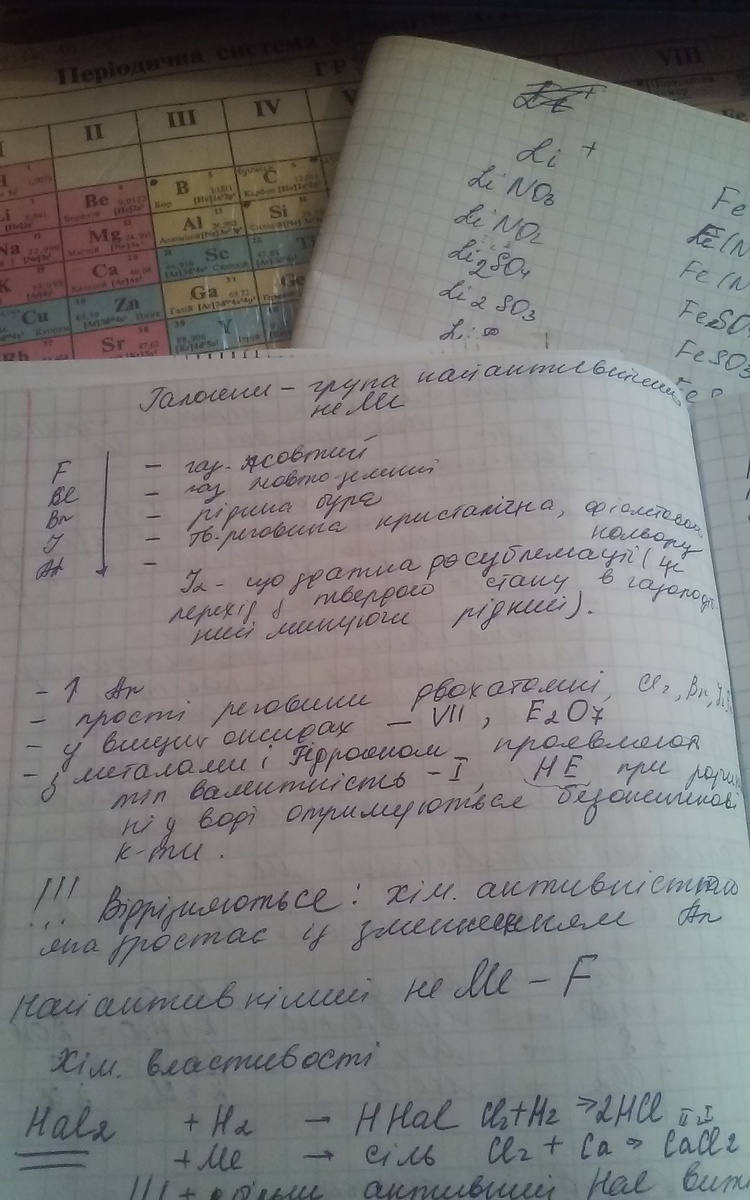 Періодична система
II III IV V VIII
Be
B
C
Li
Mg
Al
Si
Na
Ca
Sc
K
Cu
Zn
Ga
Ge
Y
Rb
Sr
Li +
LiNO3
LiNO2
Li2SO4
Li2SO3
Li
Fe
Fe(N
Fe(N
FeSO
FeSO3
Галогени – група найактивніших
неМе
F – газ. жовтий
Cl – газ жовто-зелений
Br – рідина бура
I – тв. речовина кристалічна, фіолетового
кольору
At –
I2 – що здатна до сублемації (це
перехід з твердого стану в газоподі
ний минуючи рідкий).
– ↑ Ar
– прості речовини двохатомні, Cl2, Br2, I2
– у вищих оксидах – VII, E2O7
– з металами і Гідрогеном проявляють
тіп валентність – I, HE при розчи
ні у воді отримуються безоксигенові
к-ти.
!!! Відрізняються: хім. активністю
яка зростає із зменшенням Ar
Найактивніший неМе – F
Хім. властивості
Hal2 + H2 → HHal Cl2+H2 → 2HCl
+Me → сіль Cl2 + Ca → CaCl2
II I
!!! + більш активний Hal вит